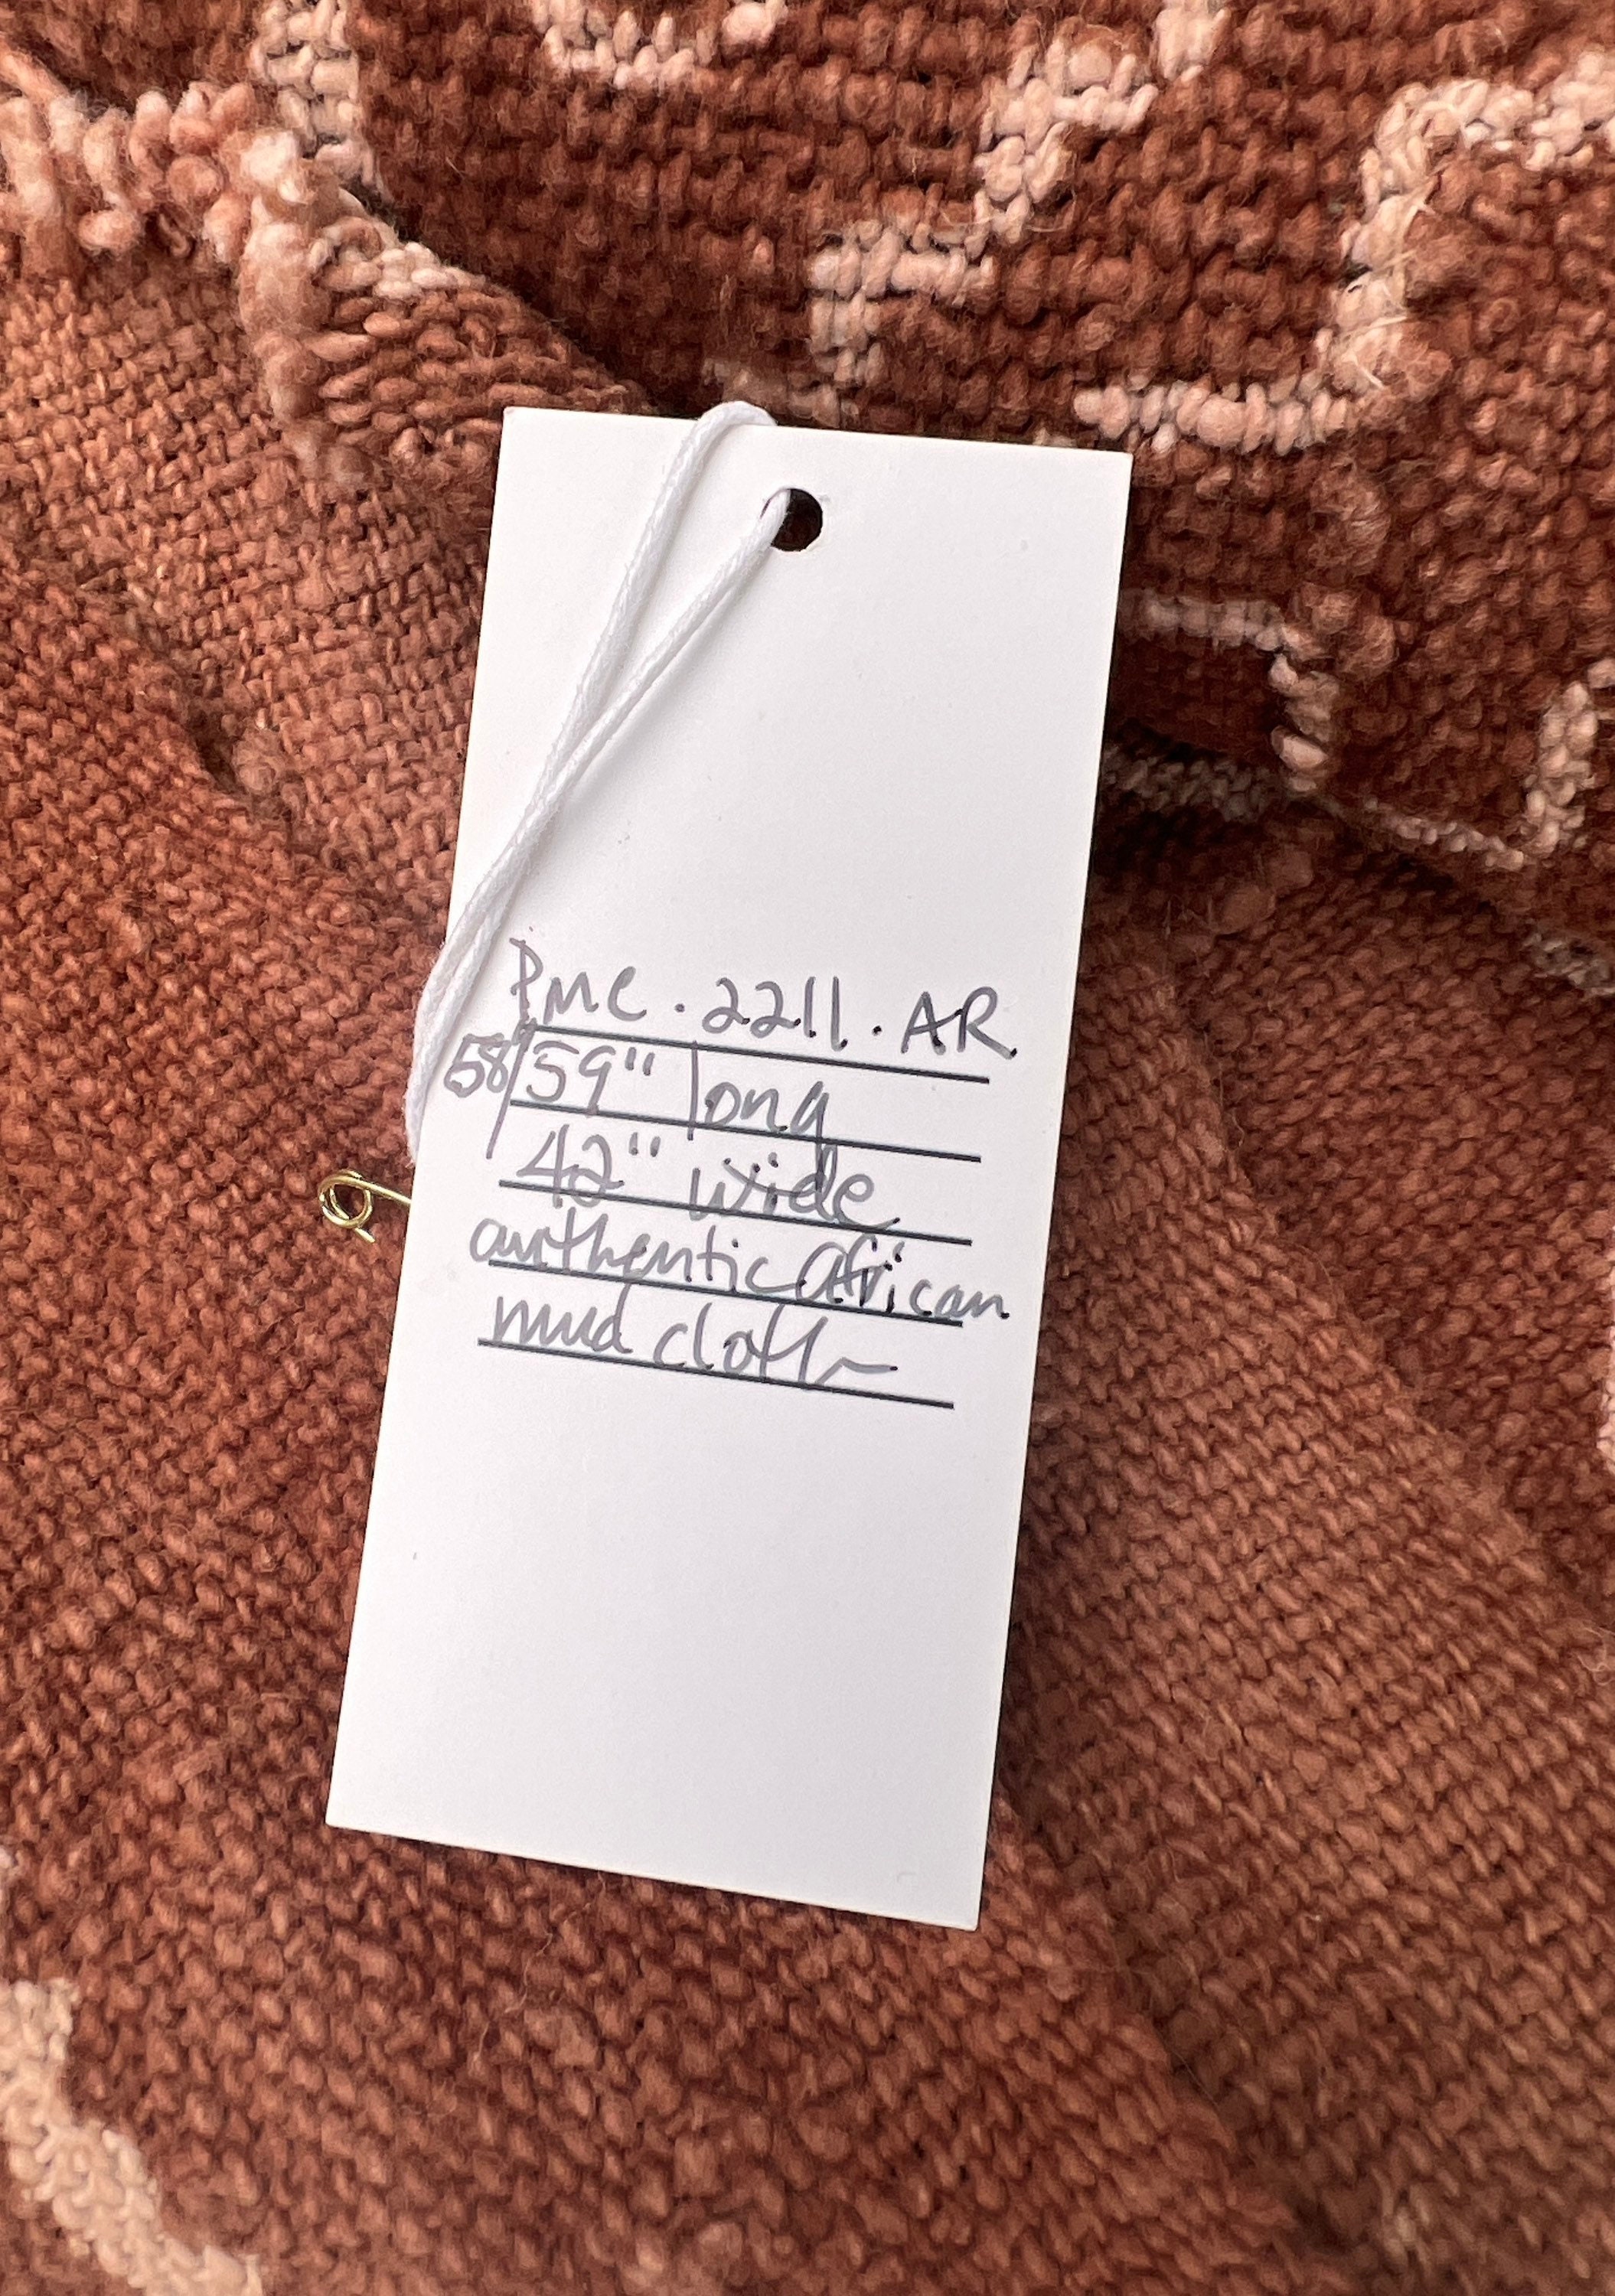 PMC . 2211 . AR
58/59" long
42" wide
authentic african
mud cloth